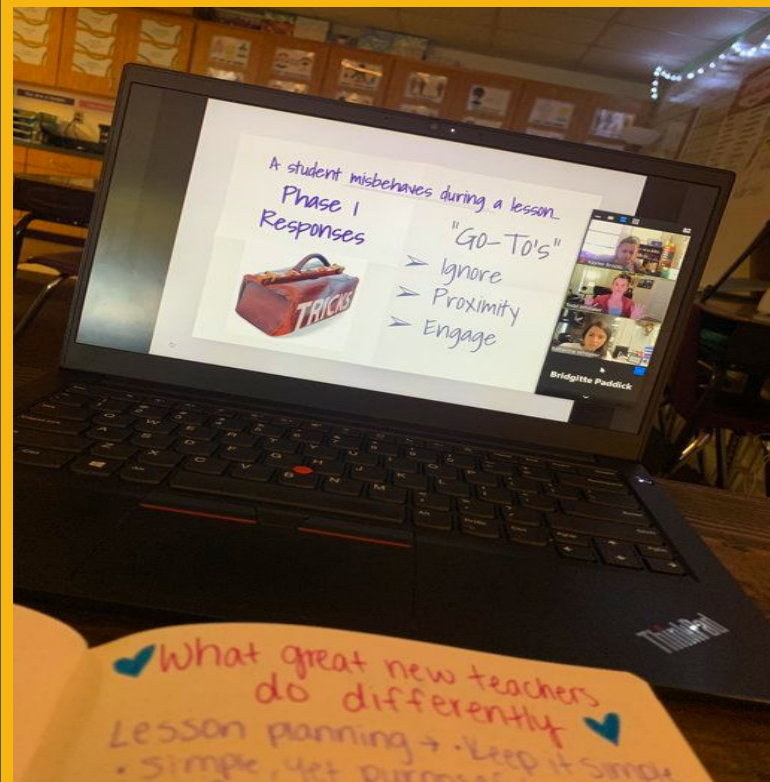 A student misbehaves during a lesson
Phase 1
Responses
TRICKS
"GO-TO's"
➢ Ignore
➢ Proximity
➢ Engage
Bridgitte Paddick
ThinkPad
What great new teachers
do differently
Lesson planning → • Keep it simple
• simple, yet